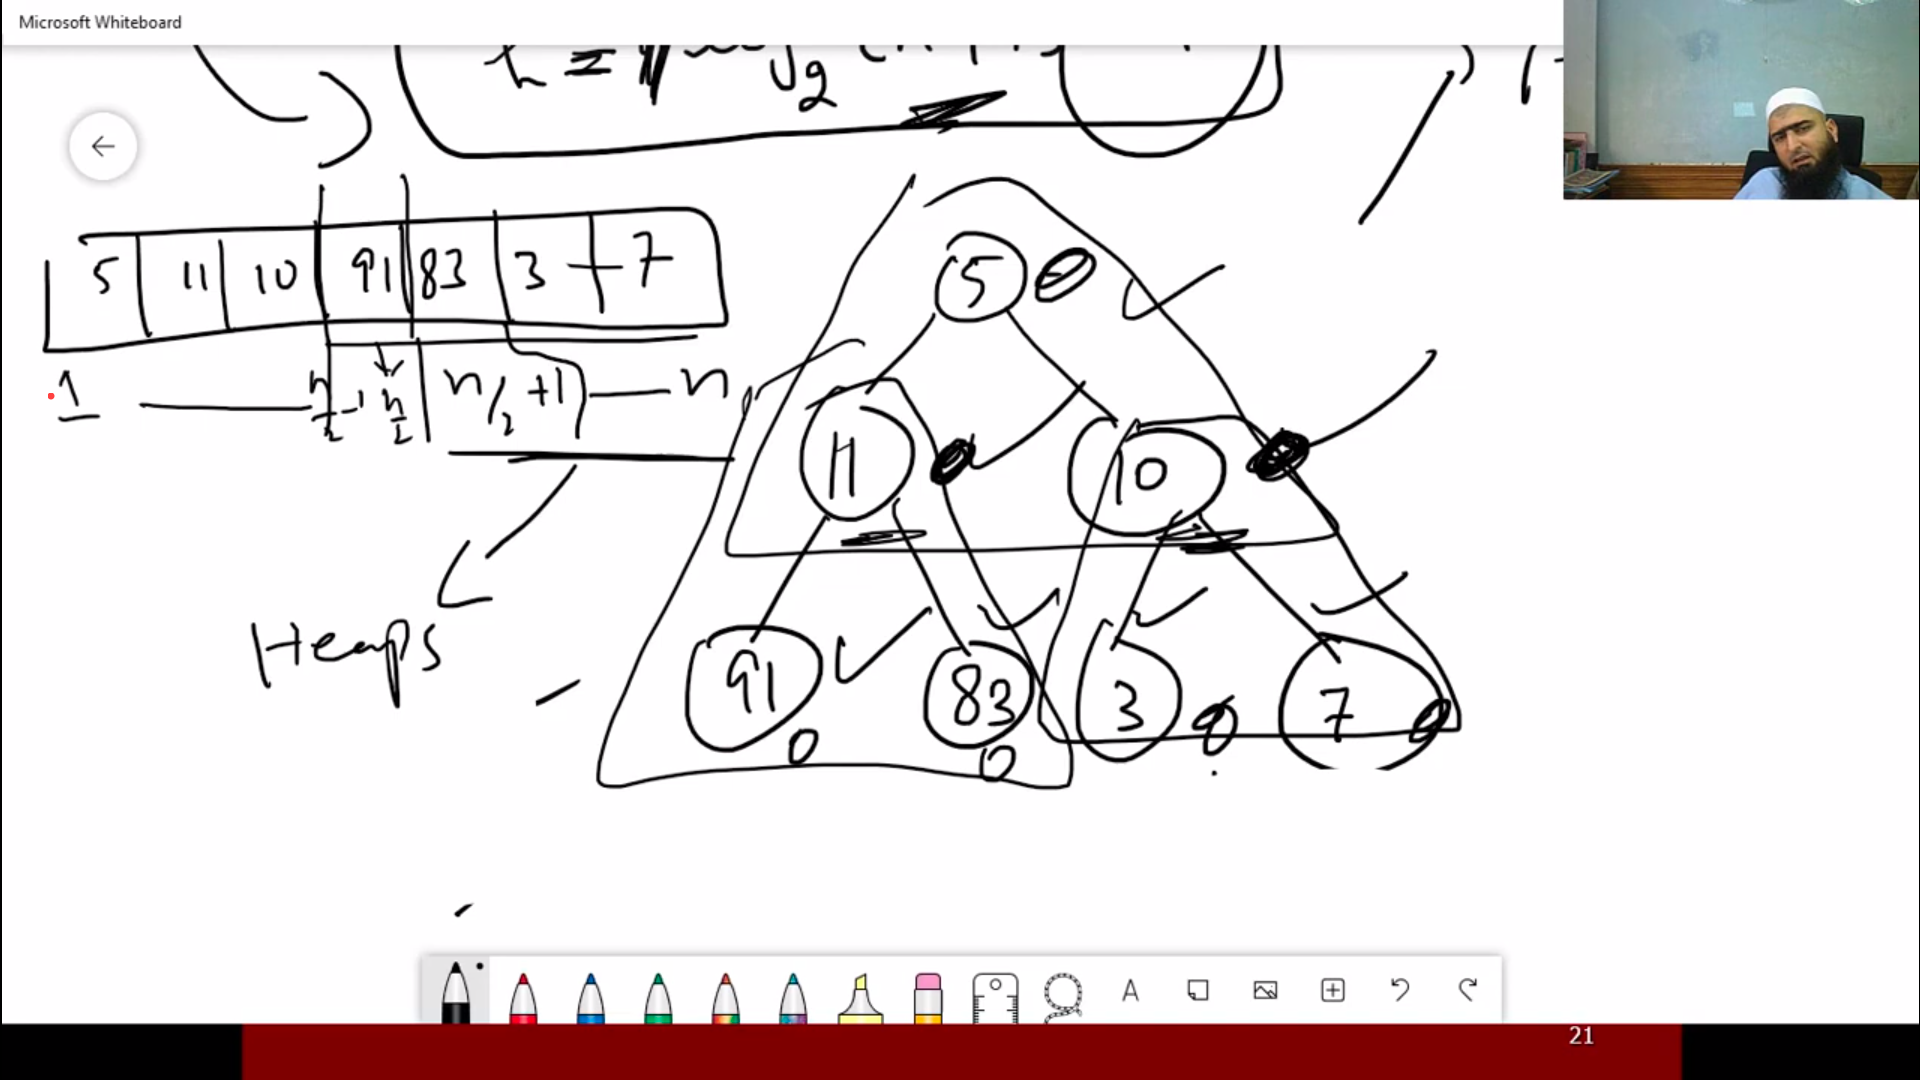 Microsoft Whiteboard
h =
5 11 10 91 83 3 7
1 n/2 -1 n/2 n/2 +1 n
5
11 10
91 83 3 7
0 0
Heaps
A
21